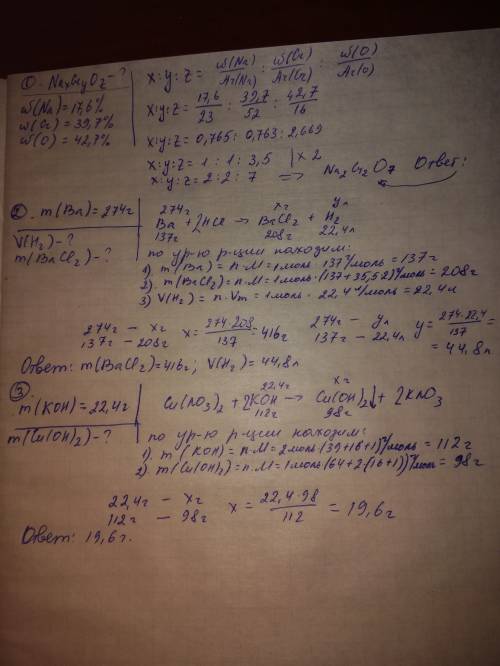 ① NaxCryOz - ?
ω(Na) = 17,6%
ω(Cr) = 39,7%
ω(O) = 42,7%
x:y:z = ω(Na)/Ar(Na) : ω(Cr)/Ar(Cr) : ω(O)/Ar(O)
x:y:z = 17,6/23 : 39,7/52 : 42,7/16
x:y:z = 0,765 : 0,763 : 2,669
x:y:z = 1 : 1 : 3,5 | x 2
x:y:z = 2:2:7 => Na2Cr2O7 Ответ:
② m(Ba) = 274г
V(H2) - ?
m(BaCl2) - ?
274г хг ул
Ba + 2HCl → BaCl2 + H2
137г 208г 22,4л
по ур-ю р-ции находим:
1). m(Ba) = n·M = 1моль · 137г/моль = 137г
2). m(BaCl2) = n·M = 1моль · (137+35,5·2)г/моль = 208г
3) V(H2) = n·Vm = 1моль · 22,4л/моль = 22,4л
274г - хг x = 274·208/137 = 416г 274г - ул y = 274·22,4/137 =
137г - 208г 137г - 22,4л = 44,8л
Ответ: m(BaCl2) = 416г; V(H2) = 44,8л
③
m(KOH) = 22,4г
m(Cu(OH)2) - ?
22,4г хг
Cu(NO3)2 + 2KOH → Cu(OH)2↓ + 2KNO3
112г 98г
по ур-ю р-ции находим:
1). m(KOH) = n·M = 2моль · (39+16+1)г/моль = 112г
2). m(Cu(OH)2) = n·M = 1моль · (64+2·(16+1))г/моль = 98г
22,4г - хг x = 22,4·98/112 = 19,6г
112г - 98г
Ответ: 19,6г.